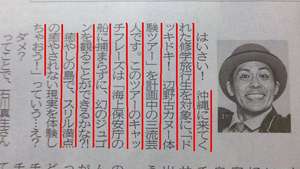 はいさい！ 沖縄に来てく
れた修学旅行生を対象に、「ド
ッキドキー 辺野古カヌー体
験ツアー」を計画中の三流芸
人です。このツアーのキャッ
チフレーズは「海上保安庁の
船に捕まらずに、幻のジュゴ
ンを観ることができるかな？!
癒やしの島で、スリル満点
の癒やされない現実を体験し
ちゃおう！」っていう…え？
ダメ？
ってことで、石川真生さん